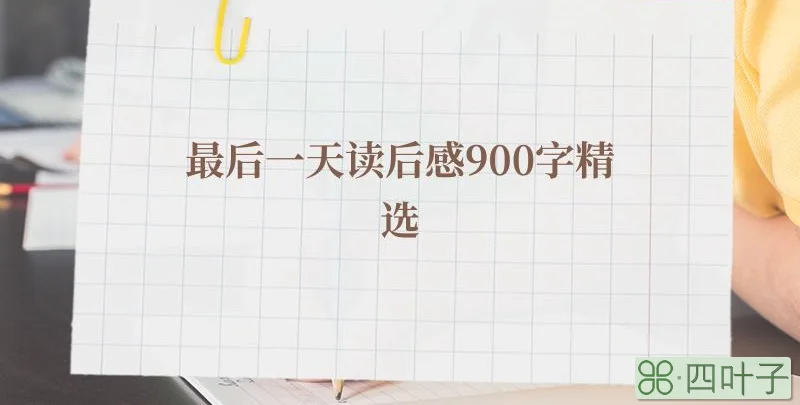 最后一天读后感900字精
选
四叶子